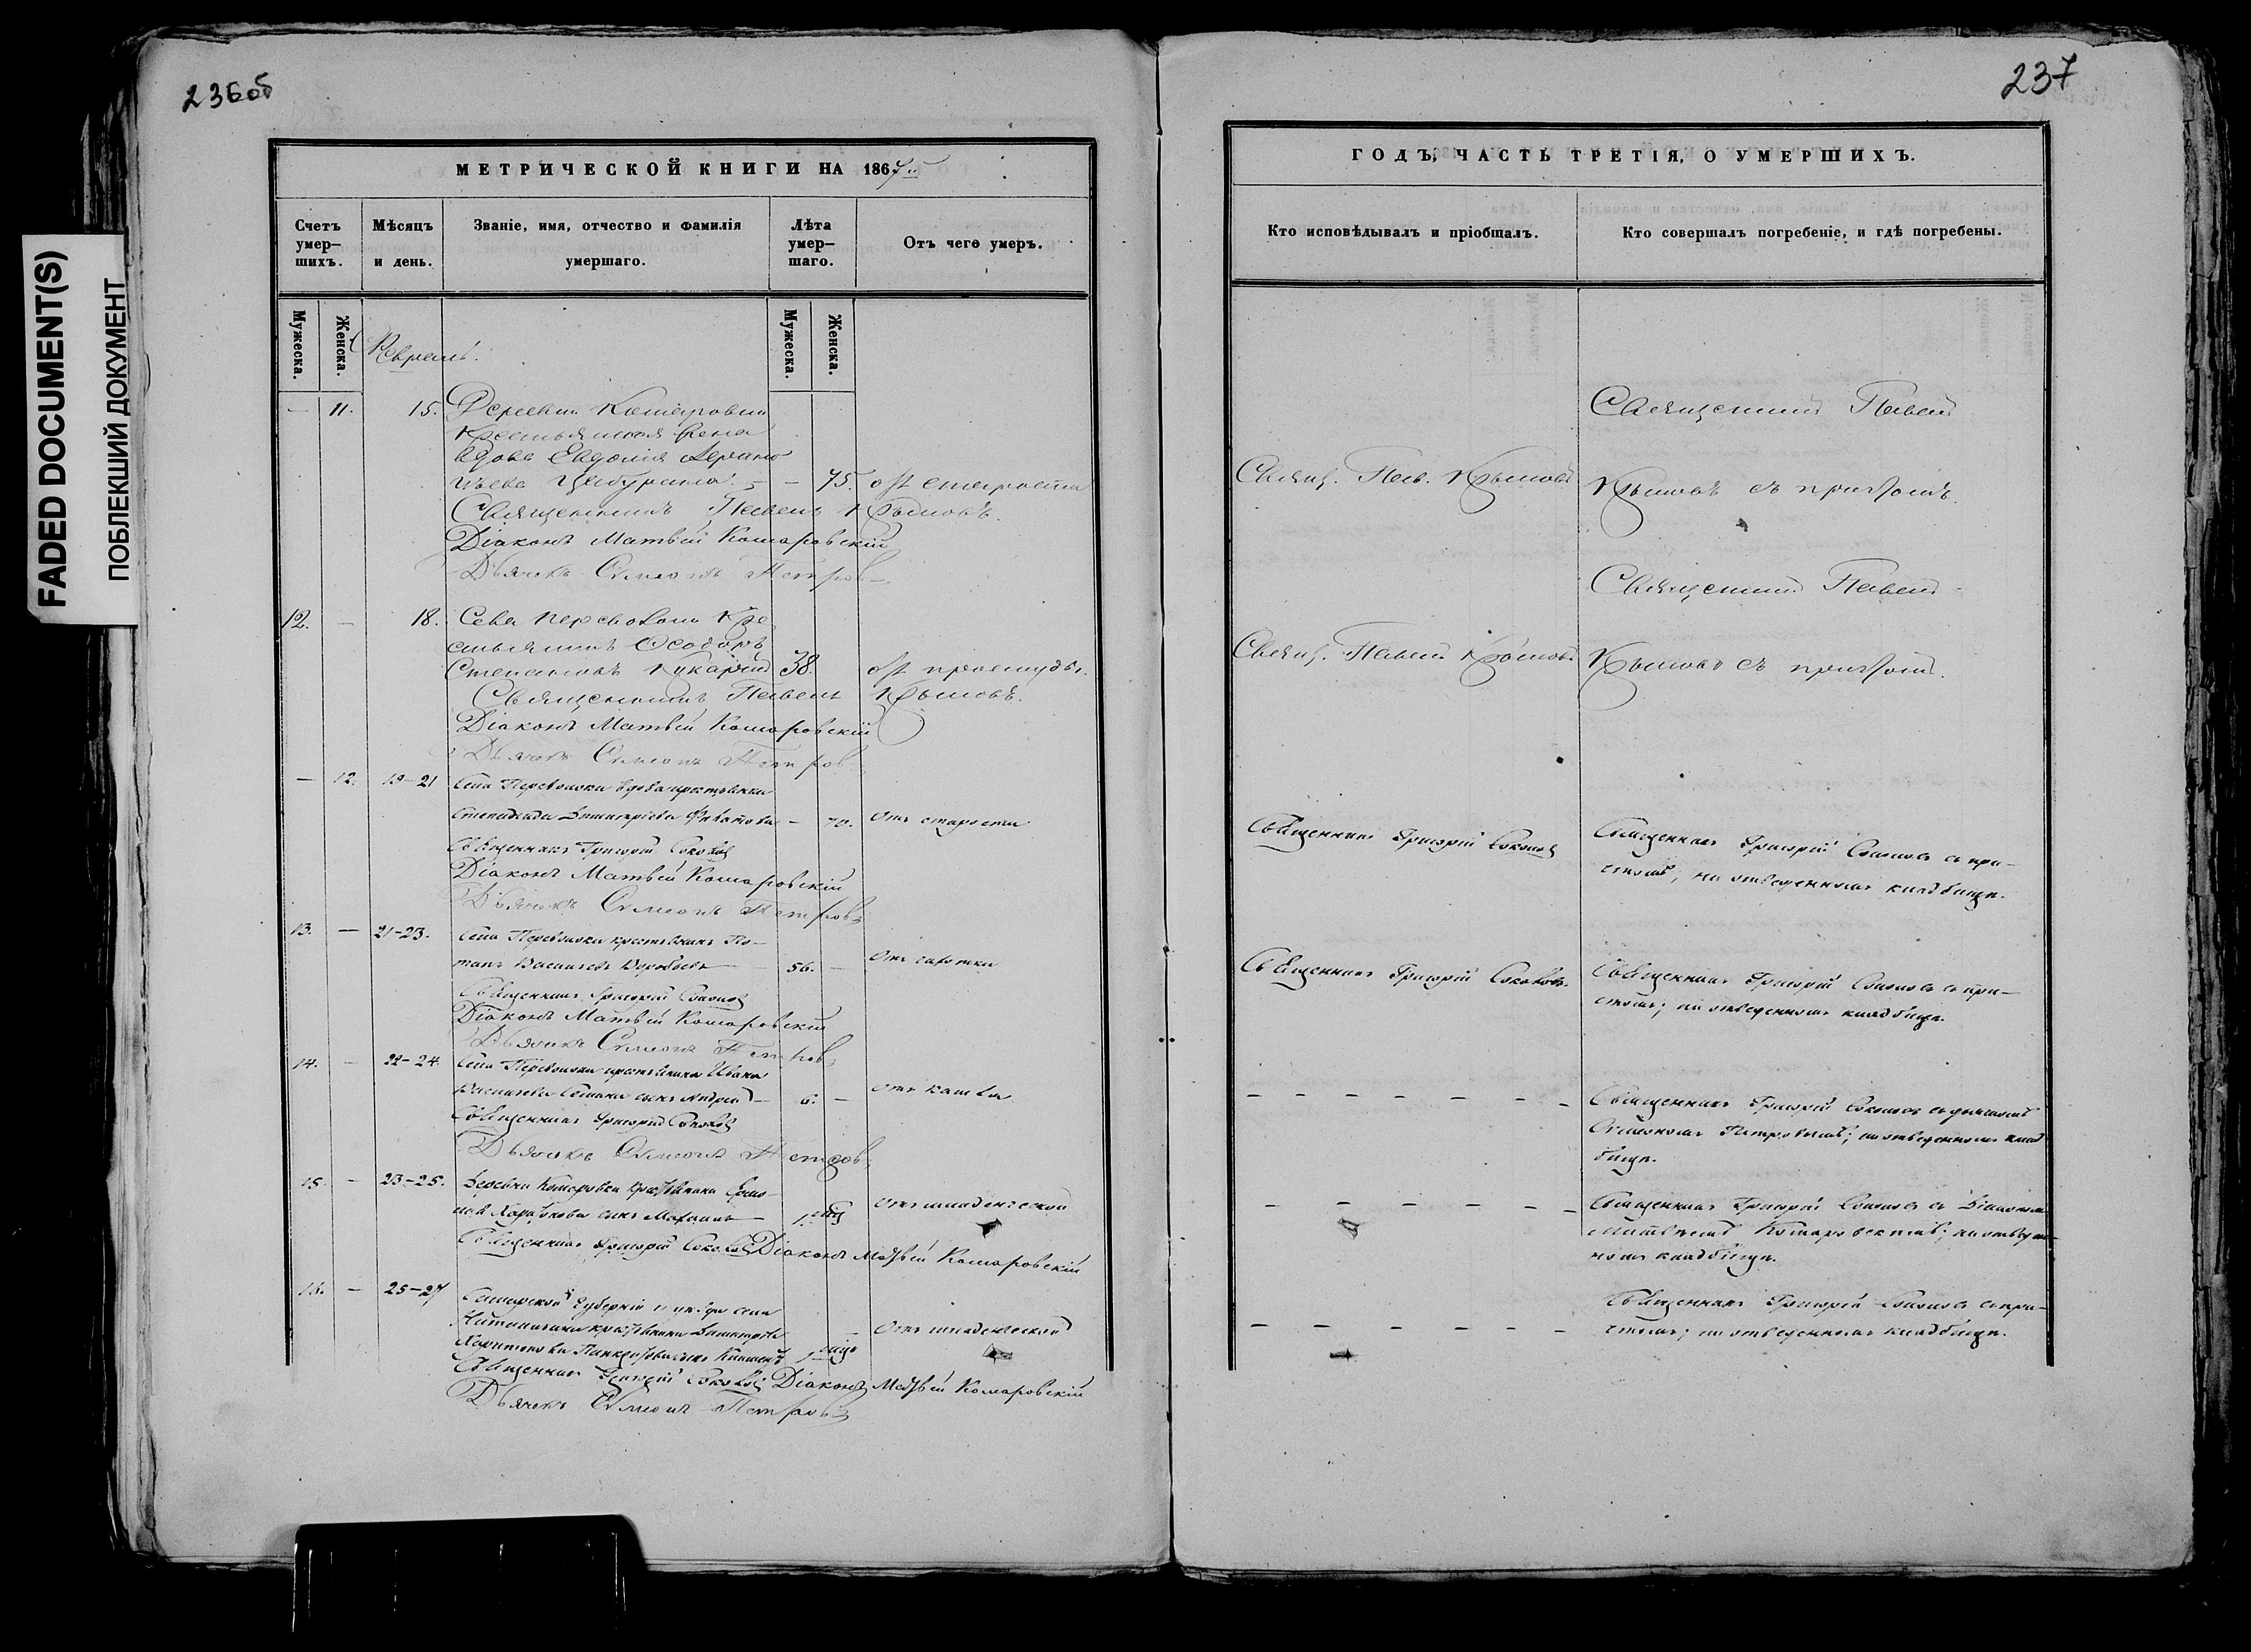 236об
237
FADED DOCUMENT(S)
ПОБЛЕКШИЙ ДОКУМЕНТ
МЕТРИЧЕСКОЙ КНИГИ НА 1867
Счетъ умер-шихъ.
Мѣсяцъ и день.
Званіе, имя, отчество и фамилія умершаго.
Лѣта умер-шаго.
Отъ чего умеръ.
Мужеска.
Женска.
Мужеска.
Женска.
Февраль.
— 11. 15. Деревни
крестьянская жена
вдова Евдокія
— 75. отъ старости
Священникъ Павелъ Крыловъ.
Діаконъ Матвѣй Комаровскій
Дьячекъ Симеонъ Петровъ
12. — 18. Села Переволоки Кре
стьянинъ Ѳеодоръ
Степановъ 38. отъ простуды.
Священникъ Павелъ Крыловъ.
Діаконъ Матвѣй Комаровскій
Дьячекъ Симеонъ Петровъ
— 12. 19-21 Села Переволоки вдова крестьянка
Степанида Димитріева Филатова — 70. Отъ старости
Священникъ Григорій Соколовъ
Діаконъ Матвѣй Комаровскій
Дьячекъ Симеонъ Петровъ
13. — 21-23. Села Переволоки крестьянинъ По-
тапъ Васильевъ Воробьевъ — 56. — Отъ чахотки
Священникъ Григорій Соколовъ
Діаконъ Матвѣй Комаровскій
Дьячекъ Симеонъ Петровъ
14. — 22-24. Села Переволоки крестьянина Ивана
Васильева сынъ Андрей — 6. — Отъ кашля
Священникъ Григорій Соколовъ
Дьячекъ Симеонъ Петровъ
15. — 23-25. Деревни Комаровки крестьянина
сынъ — 1. Отъ младенческой
Священникъ Григорій Соколовъ Діаконъ Матвѣй Комаровскій
16. — 25-27 Самарской Губерніи и уѣзда села
крестьянина Димитрія
Харитонова сынъ 1 Отъ младенческой
Священникъ Григорій Соколовъ Діаконъ Матвѣй Комаровскій
Дьячекъ Симеонъ Петровъ
ГОДЪ, ЧАСТЬ ТРЕТІЯ, О УМЕРШИХЪ.
Кто исповѣдывалъ и пріобщалъ.
Кто совершалъ погребеніе, и гдѣ погребены.
Священникъ Павелъ
Свящ. Пав. Крыловъ
Крыловъ съ причтомъ.
Священникъ Павелъ
Свящ. Павелъ Крыловъ
Крыловъ съ причтомъ.
Священникъ Григорій Соколовъ
Священникъ Григорій Соколовъ съ при-
чтомъ, на отведенномъ кладбищѣ.
Священникъ Григорій Соколовъ.
Священникъ Григорій Соколовъ съ при-
чтомъ; на отведенномъ кладбищѣ.
Священникъ Григорій Соколовъ съ дьячкомъ
Симеономъ Петровымъ; на отведенномъ клад
бищѣ.
Священникъ Григорій Соколовъ съ Діакономъ
Матвѣемъ Комаровскимъ; на отведен-
номъ кладбищѣ.
Священникъ Григорій Соколовъ съ при-
чтомъ; на отведенномъ кладбищѣ.